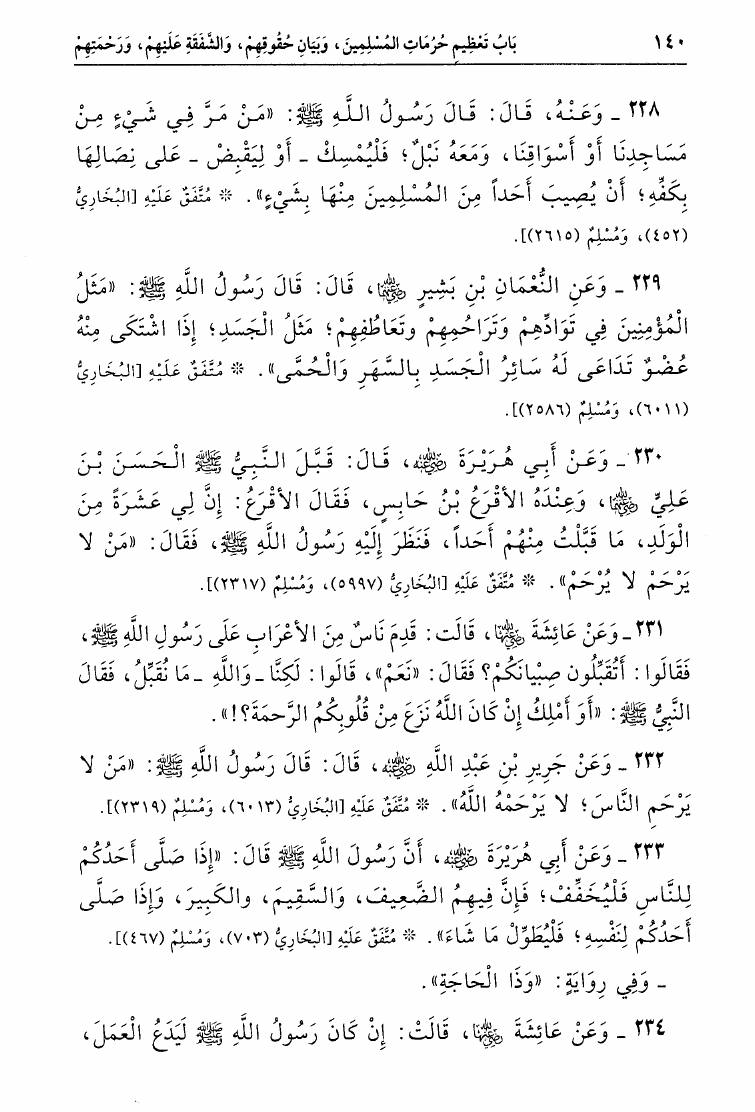 ١٤٠ بَابُ تَعْظِيمِ حُرُمَاتِ المُسْلِمِينَ، وَبَيَانِ حُقُوقِهِمْ، وَالشَّفَقَةِ عَلَيْهِمْ، وَرَحْمَتِهِمْ
٢٢٨ ـ وَعَنْهُ، قَالَ: قَالَ رَسُولُ اللَّهِ ﷺ: «مَنْ مَرَّ فِي شَيْءٍ مِنْ
مَسَاجِدِنَا أَوْ أَسْوَاقِنَا، وَمَعَهُ نَبْلٌ؛ فَلْيُمْسِكْ ـ أَوْ لِيَقْبِضْ ـ عَلى نِصَالِهَا
بِكَفِّهِ؛ أَنْ يُصِيبَ أَحَداً مِنَ المُسْلِمِينَ مِنْهَا بِشَيْءٍ». * مُتَّفَقٌ عَلَيْهِ [البُخَارِيُّ
(٤٥٢)، وَمُسْلِمٌ (٢٦١٥)].
٢٢٩ ـ وَعَنِ النُّعْمَانِ بْنِ بَشِيرٍ رضي الله عنهما، قَالَ: قَالَ رَسُولُ اللَّهِ ﷺ: «مَثَلُ
الْمُؤْمِنِينَ فِي تَوَادِّهِمْ وَتَرَاحُمِهِمْ وتَعَاطُفِهِمْ؛ مَثَلُ الْجَسَدِ؛ إِذَا اشْتَكَى مِنْهُ
عُضْوٌ تَدَاعَى لَهُ سَائِرُ الْجَسَدِ بِالسَّهَرِ وَالْحُمَّى». * مُتَّفَقٌ عَلَيْهِ [البُخَارِيُّ
(٦٠١١)، وَمُسْلِمٌ (٢٥٨٦)].
٢٣٠ ـ وَعَنْ أَبِي هُرَيْرَةَ رضي الله عنه، قَالَ: قَبَّلَ النَّبِيُّ ﷺ الْحَسَنَ بْنَ
عَلِيٍّ رضي الله عنهما، وَعِنْدَهُ الأَقْرَعُ بْنُ حَابِسٍ، فَقَالَ الأَقْرَعُ: إِنَّ لِي عَشَرَةً مِنَ
الْوَلَدِ، مَا قَبَّلْتُ مِنْهُمْ أَحَداً، فَنَظَرَ إِلَيْهِ رَسُولُ اللَّهِ ﷺ، فَقَالَ: «مَنْ لا
يَرْحَمْ لا يُرْحَمْ». * مُتَّفَقٌ عَلَيْهِ [البُخَارِيُّ (٥٩٩٧)، وَمُسْلِمٌ (٢٣١٧)].
٢٣١ ـ وَعَنْ عَائِشَةَ رضي الله عنها، قَالَت: قَدِمَ نَاسٌ مِنَ الأعْرَابِ عَلَى رَسُولِ اللَّهِ ﷺ،
فَقَالُوا: أَتُقَبِّلُون صِبْيَانَكُمْ؟ فَقَالَ: «نَعَمْ»، قَالُوا: لَكِنَّا ـ وَاللَّهِ ـ مَا نُقَبِّلُ، فَقَالَ
النَّبِيُّ ﷺ: «أَوَ أَمْلِكُ إِنْ كَانَ اللَّهُ نَزَعَ مِنْ قُلُوبِكُمُ الرَّحمَةَ؟!».
٢٣٢ ـ وَعَنْ جَرِيرِ بْنِ عَبْدِ اللَّهِ رضي الله عنه، قَالَ: قَالَ رَسُولُ اللَّهِ ﷺ: «مَنْ لا
يَرْحَمِ النَّاسَ؛ لا يَرْحَمْهُ اللَّهُ». * مُتَّفَقٌ عَلَيْهِ [البُخَارِيُّ (٦٠١٣)، وَمُسْلِمٌ (٢٣١٩)].
٢٣٣ ـ وَعَنْ أَبِي هُرَيْرَةَ رضي الله عنه، أَنَّ رَسُولَ اللَّهِ ﷺ قَالَ: «إِذَا صَلَّى أَحَدُكُمْ
لِلنَّاسِ فَلْيُخَفِّفْ؛ فَإِنَّ فِيهِمُ الضَّعِيفَ، وَالسَّقِيمَ، والكَبِيرَ، وَإِذَا صَلَّى
أَحَدُكُمْ لِنَفْسِهِ؛ فَلْيُطَوِّلْ مَا شَاءَ». * مُتَّفَقٌ عَلَيْهِ [البُخَارِيُّ (٧٠٣)، وَمُسْلِمٌ (٤٦٧)].
ـ وَفِي رِوَايَةٍ: «وَذَا الْحَاجَةِ».
٢٣٤ ـ وَعَنْ عَائِشَةَ رضي الله عنها، قَالَتْ: إِنْ كَانَ رَسُولُ اللَّهِ ﷺ لَيَدَعُ الْعَمَلَ،